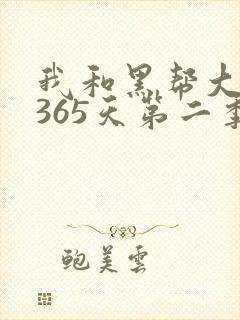 我和黑帮大
365天第二季
鲍美雲